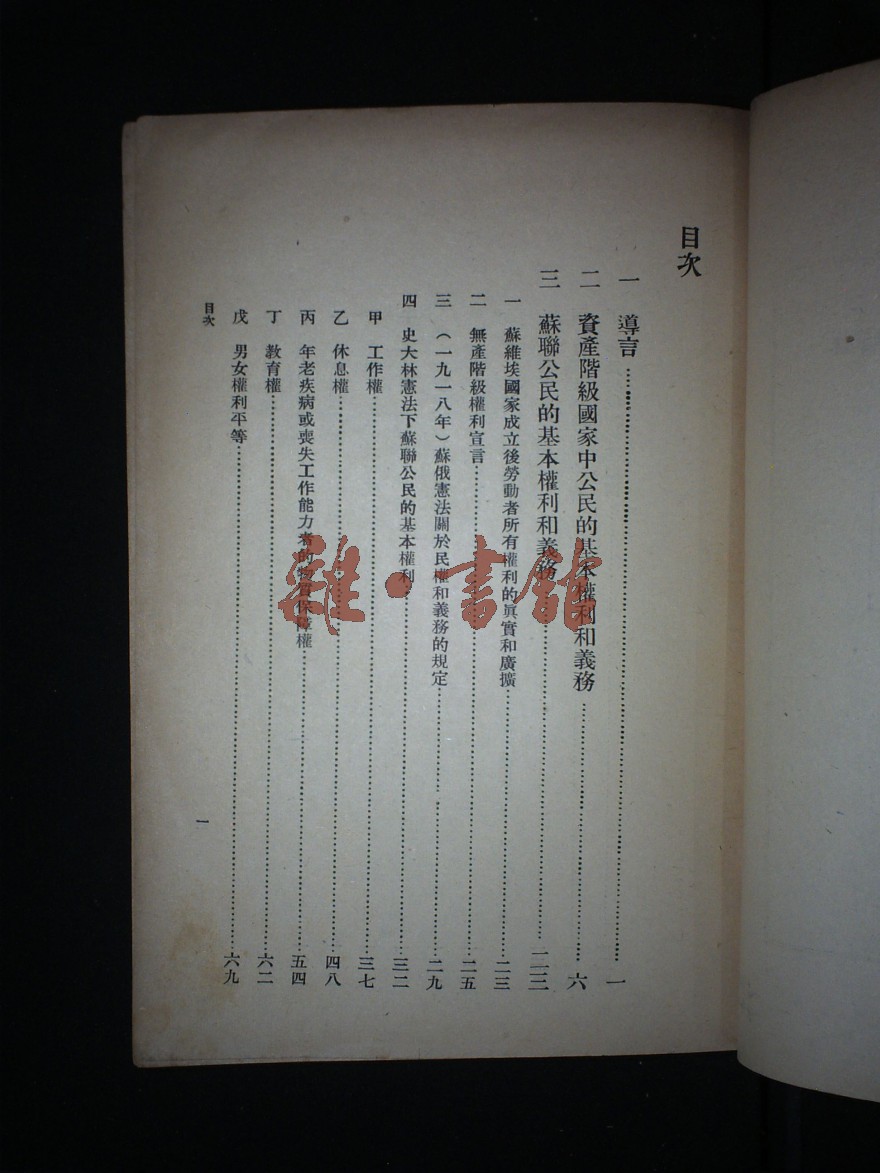 目次
一 導言……一
二 資產階級國家中公民的基本權利和義務……六
三 蘇聯公民的基本權利和義務……二三
一 蘇維埃國家成立後勞動者所有權利的眞實和廣擴……二三
二 無產階級權利宣言……二五
三 （一九一八年）蘇俄憲法關於民權和義務的規定……二九
四 史大林憲法下蘇聯公民的基本權利……三二
甲 工作權……三七
乙 休息權……四八
丙 年老疾病或喪失工作能力者的物質保障權……五四
丁 教育權……六二
戊 男女權利平等……六九
目次
一
雜·書館